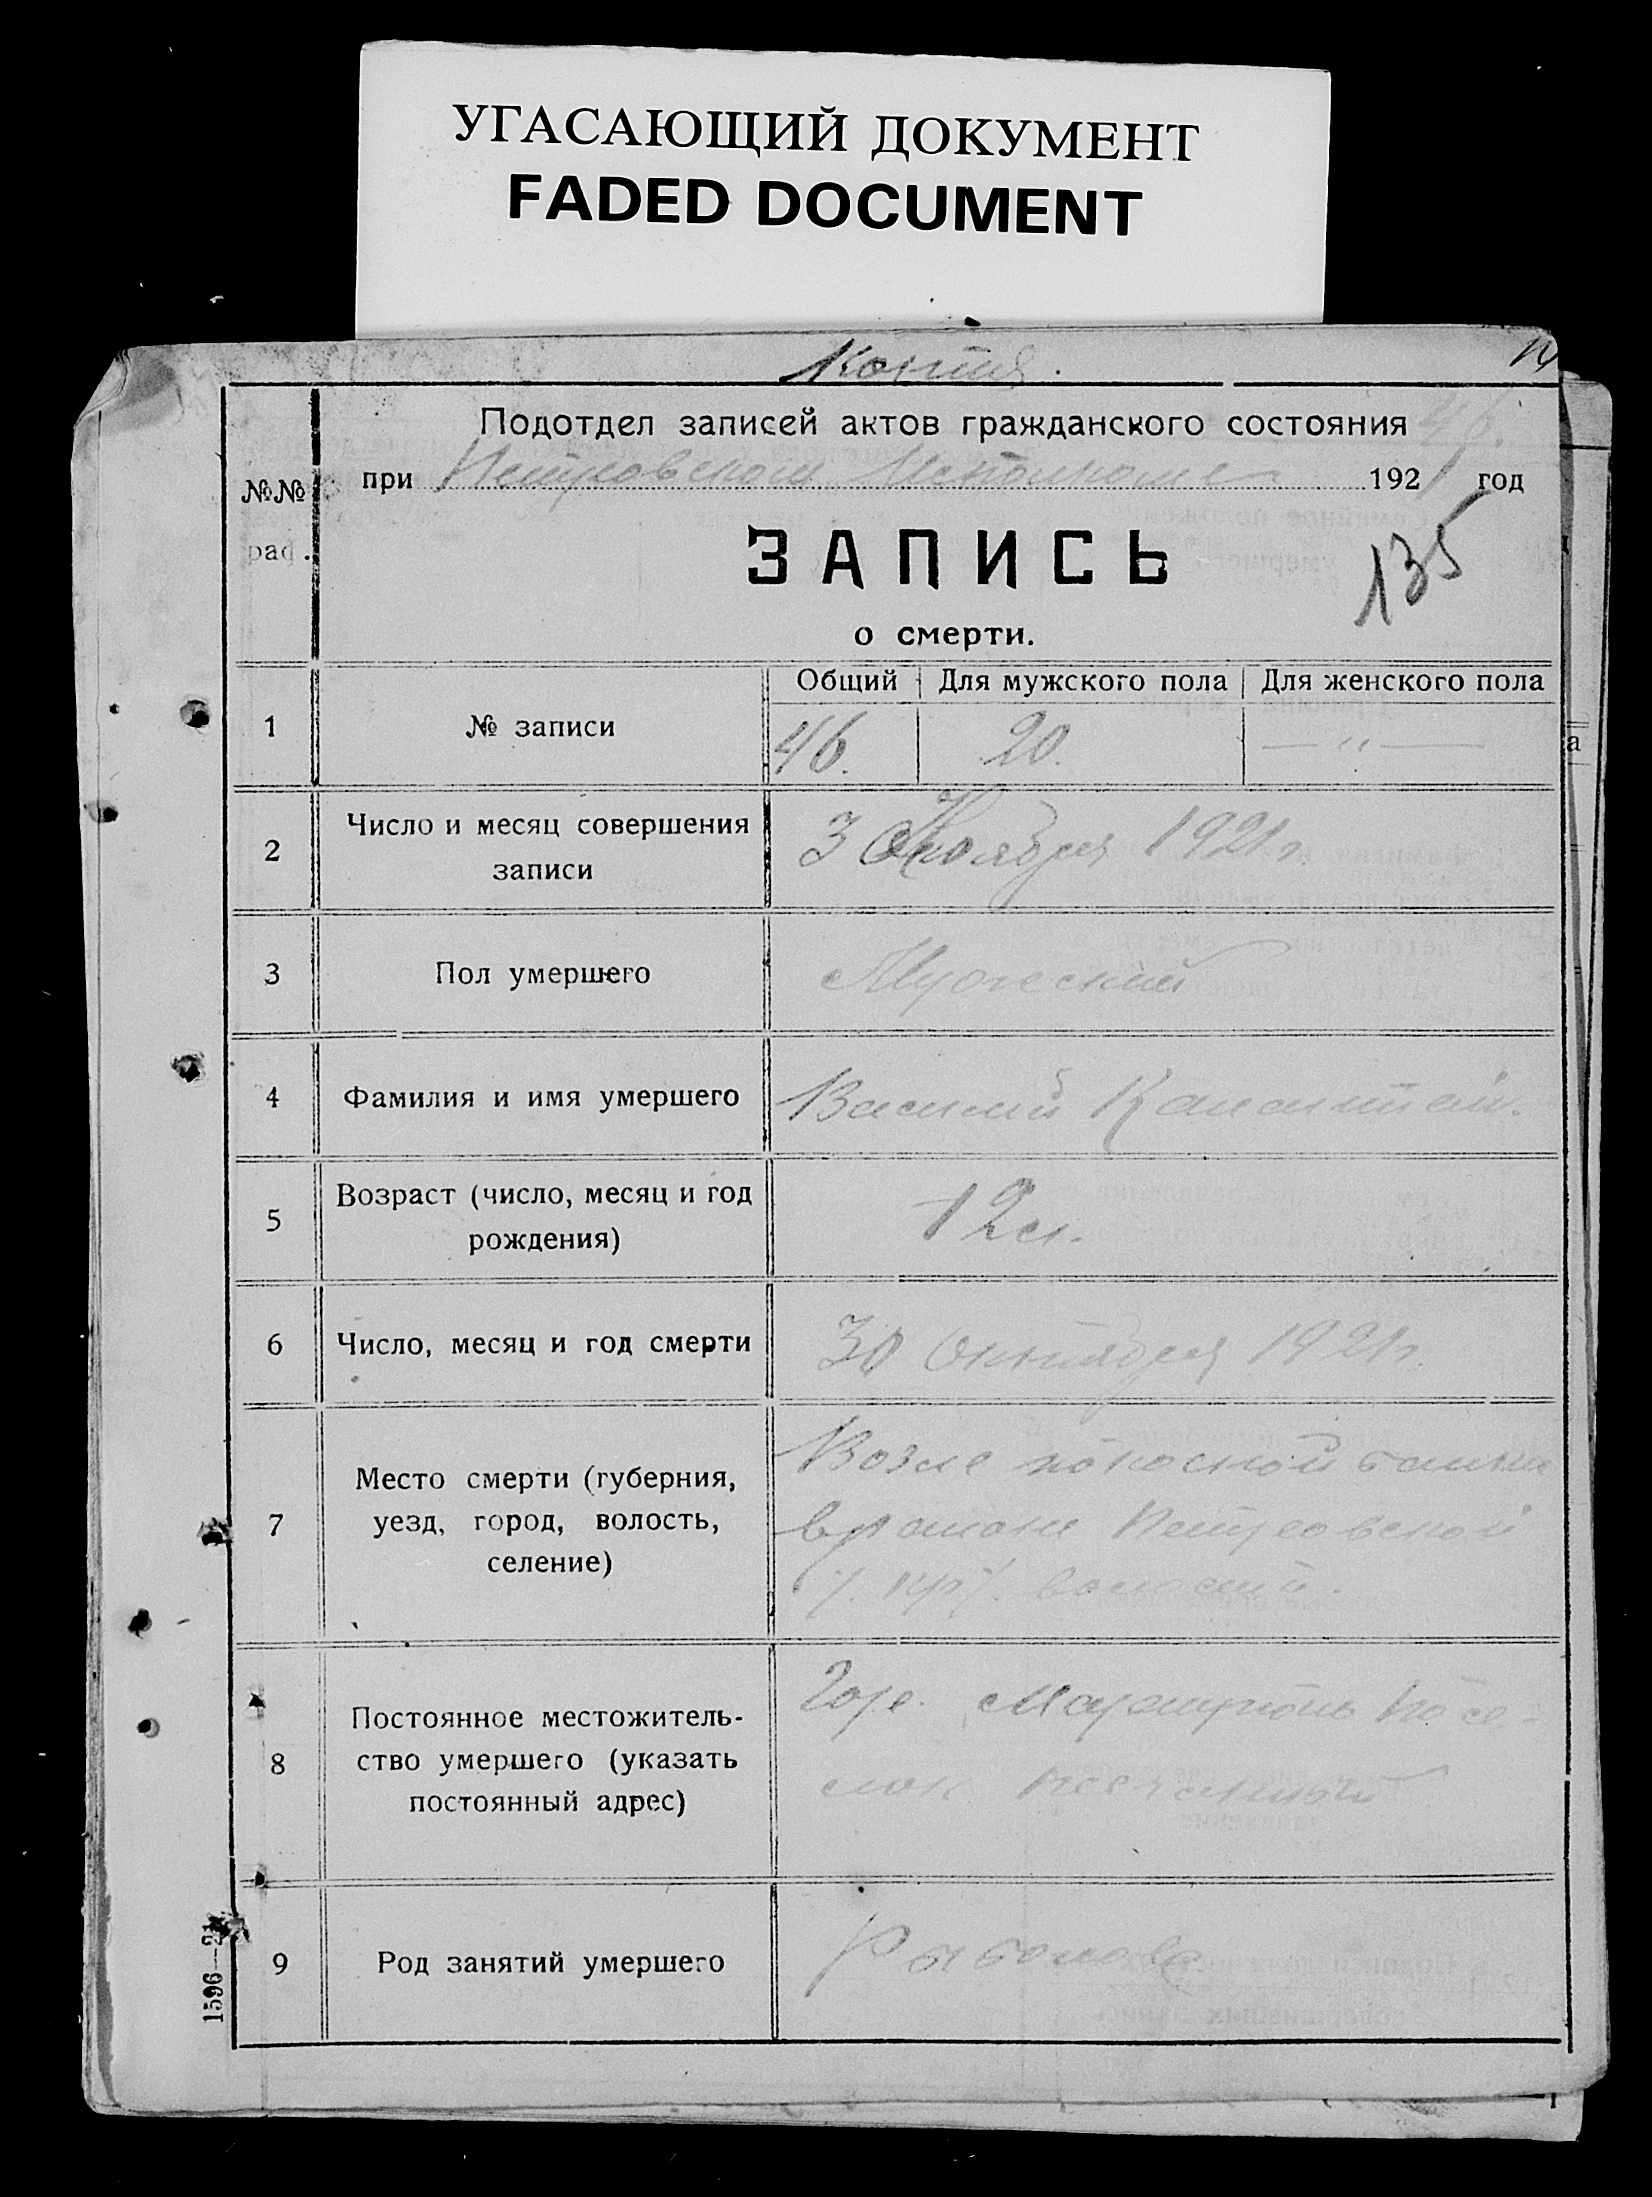 УГАСАЮЩИЙ ДОКУМЕНТ
FADED DOCUMENT
Копия.
Подотдел записей актов гражданского состояния 46.
при Петровском Исполкоме 1921 год
№№
раф.
ЗАПИСЬ
135
о смерти.
Общий Для мужского пола Для женского пола
1 № записи 46. 20. — " —
2 Число и месяц совершения
записи
3 Ноября 1921 г.
3 Пол умершего Мужеский
4 Фамилия и имя умершего Василий
5 Возраст (число, месяц и год
рождения)
12 л.
6 Число, месяц и год смерти 30 Октября 1921 г.
7 Место смерти (губерния,
уезд, город, волость,
селение)
Возле
в районе Петровской
волости.
8 Постоянное местожитель-
ство умершего (указать
постоянный адрес)
Гор. Мариуполь посе-
лок Песчаный
9 Род занятий умершего
1596—21
а